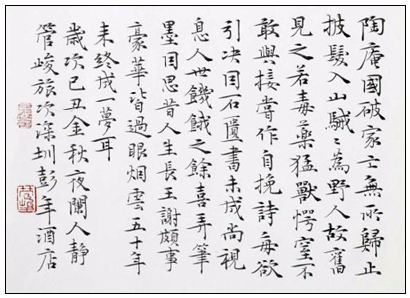 陶庵國破家亡無所歸止
披髮入山駴々為野人故舊
見之若毒藥猛獸愕窒不
敢與接嘗作自挽詩每欲
引決因石匱書未成尚視
息人世饑餓之餘喜弄筆
墨因思昔人生長王謝頗事
豪華皆過眼烟雲五十年
来終成一夢耳
歲次己丑金秋夜闌人靜
管峻旅次深圳彭年酒店